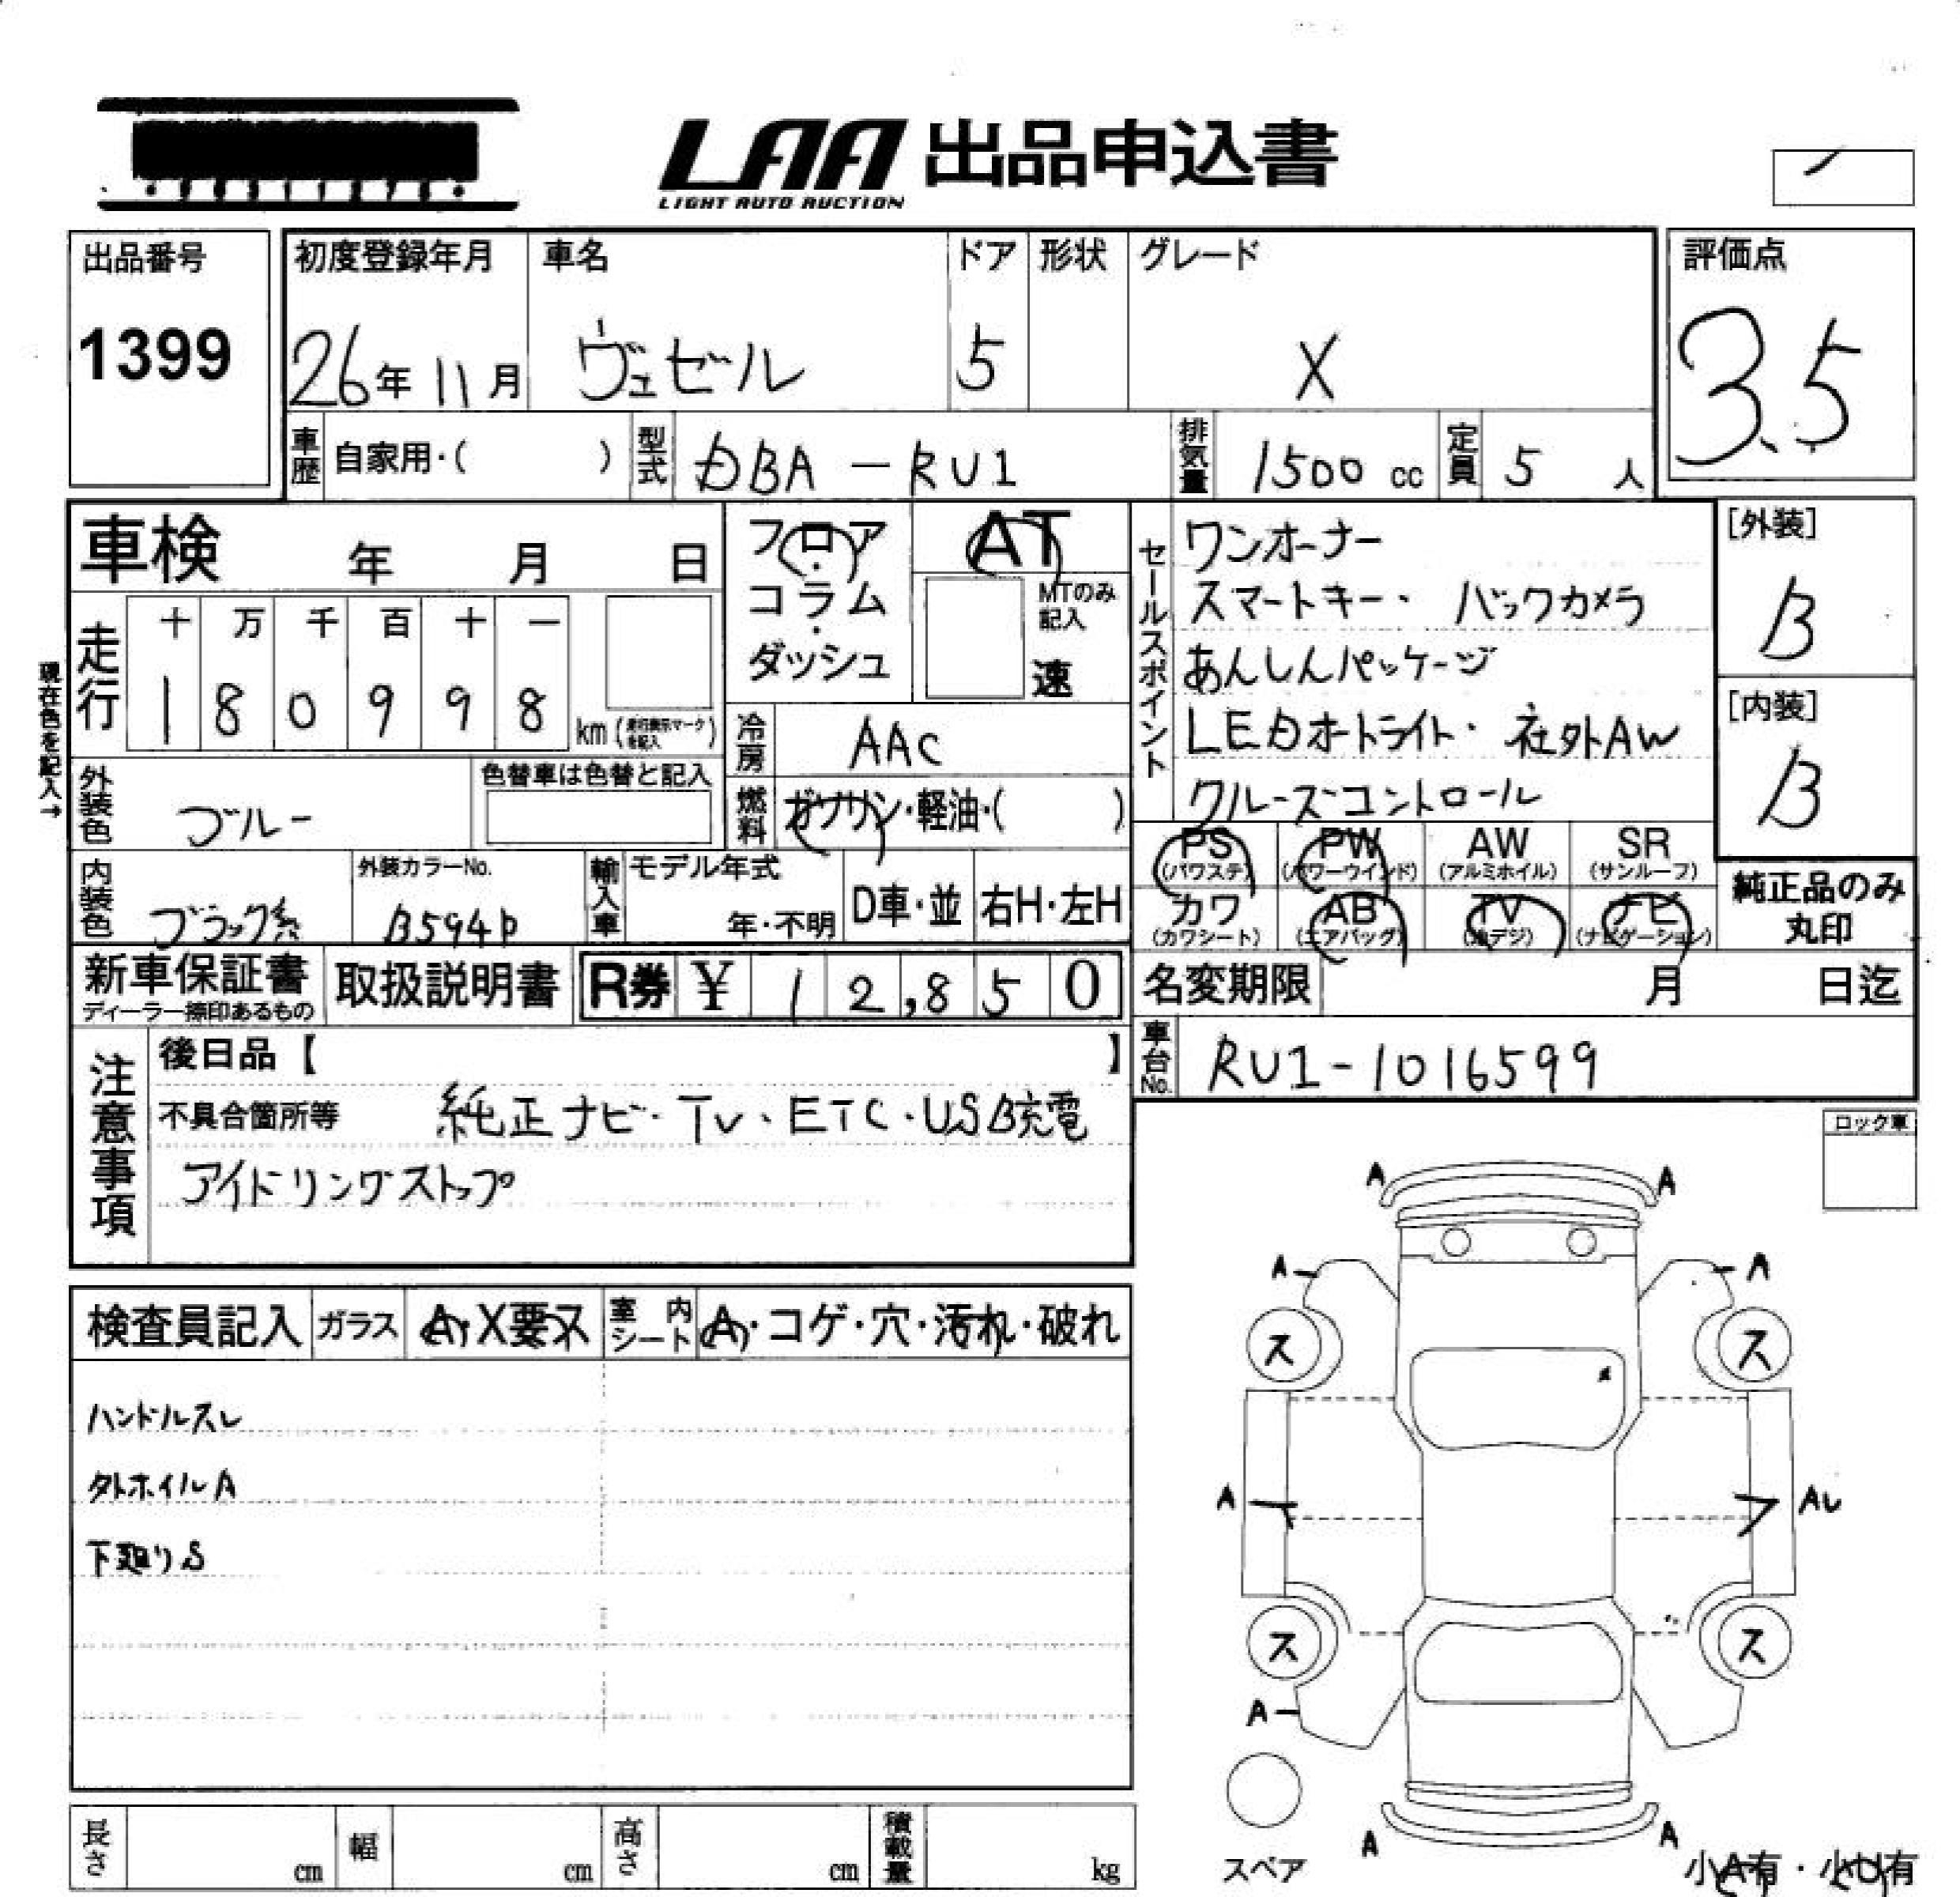 LAA 出品申込書
LIGHT AUTO AUCTION
出品番号
1399
初度登録年月
26年11月
車名
ヴェゼル
ドア
5
形状
グレード
X
評価点
3.5
車歴 自家用・( )
型式 DBA-RU1
排気量 1500 cc
定員 5 人
車検 年 月 日
フロア・コラム・ダッシュ
AT
MTのみ記入
速
セールスポイント
ワンオーナー
スマートキー・バックカメラ
あんしんパッケージ
LEDオートライト・社外AW
クルーズコントロール
[外装]
B
[内装]
B
現在色を記入→
走行
十 万 千 百 十 一
1 8 0 9 9 8
km(走行表示マークを記入)
冷房 AAC
外装色 ブルー
色替車は色替と記入
燃料 ガソリン・軽油・( )
PS (パワステ)
PW (パワーウインド)
AW (アルミホイル)
SR (サンルーフ)
カワ (カワシート)
AB (エアバッグ)
TV (地デジ)
ナビ (ナビゲーション)
純正品のみ
丸印
内装色 ブラック系
外装カラーNo.
B594P
輸入車
モデル年式
年・不明
D車・並
右H・左H
新車保証書
ディーラー捺印あるもの
取扱説明書
R券 ¥ 12,850
名変期限 月 日迄
車台No. RU1-1016599
注意事項
後日品【 】
不具合箇所等 純正ナビ・TV・ETC・USB充電
アイドリングストップ
ロック車
検査員記入
ガラス A・X要ス
室内シート A・コゲ・穴・汚れ・破れ
ハンドルスレ
タトホイルA
下廻りS
A A
A A
ス ス
A AU
ス ス
A
A A
スペア
小A有・小U有
長さ cm
幅 cm
高さ cm
積載量 kg